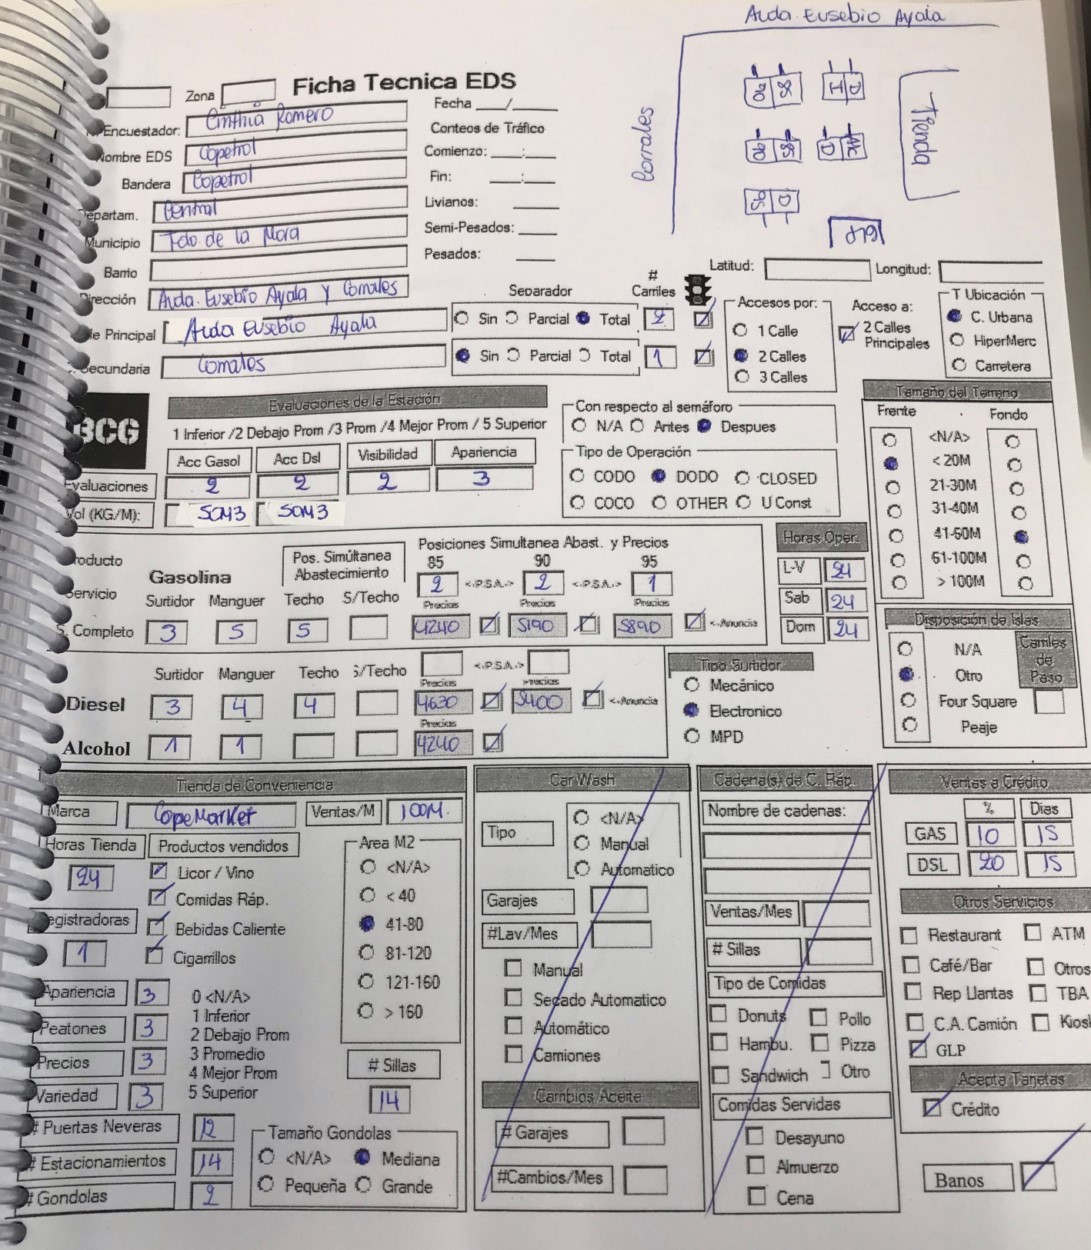 Avda. Eusebio Ayala
Corrales
Tienda
GLP
Zona
Ficha Tecnica EDS
Encuestador: Cinthia Romero
Fecha ___/___
Nombre EDS Copetrol
Conteos de Tráfico
Bandera Copetrol
Comienzo: __:__
Departam. Central
Fin: __:__
Municipio Fdo de la Mora
Livianos: ____
Barrio
Semi-Pesados: ____
Pesados: ____
Dirección Avda. Eusebio Ayala y Corrales
Latitud: Longitud:
Separador # Carriles
Principal Avda Eusebio Ayala Sin Parcial Total 2
Secundaria Corrales Sin Parcial Total 1
Accesos por:
1 Calle
2 Calles
3 Calles
Acceso a:
2 Calles Principales
T Ubicación
C. Urbana
HiperMerc
Carretera
BCG
Evaluaciones de la Estación
1 Inferior /2 Debajo Prom /3 Prom /4 Mejor Prom / 5 Superior
Acc Gasol Acc Dsl Visibilidad Apariencia
Evaluaciones 2 2 2 3
Vol (KG/M): 50M3 50M3
Con respecto al semáforo
N/A Antes Despues
Tipo de Operación
CODO DODO CLOSED
COCO OTHER U Const
Tamaño del Terreno
Frente Fondo
<N/A>
< 20M
21-30M
31-40M
41-60M
61-100M
> 100M
Producto
Servicio
Gasolina
Pos. Simúltanea Abastecimiento
Posiciones Simultanea Abast. y Precios
85 90 95
2 <.P.S.A.> 2 <.P.S.A.> 1
Surtidor Manguer Techo S/Techo
Precios Precios Precios
S. Completo 3 5 5 4240 5190 5890 <-Anuncia
Horas Oper.
L-V 24
Sab 24
Dom 24
Surtidor Manguer Techo S/Techo <.P.S.A.>
Precios Precios
Diesel 3 4 4 4630 5400 <-Anuncia
Precios
Alcohol 1 1 4240
Tipo Surtidor
Mecánico
Electronico
MPD
Disposición de Islas
N/A
Otro
Four Square
Peaje
Carriles de Paso
Tienda de Conveniencia
Marca CopeMarket Ventas/M 100M.
Horas Tienda 24
Productos vendidos
Licor / Vino
Comidas Ráp.
Bebidas Caliente
Cigarrillos
Registradoras 1
Area M2
<N/A>
< 40
41-80
81-120
121-160
> 160
Apariencia 3
Peatones 3
Precios 3
Variedad 3
0 <N/A>
1 Inferior
2 Debajo Prom
3 Promedio
4 Mejor Prom
5 Superior
# Sillas
14
# Puertas Neveras 12
# Estacionamientos 14
# Gondolas 2
Tamaño Gondolas
<N/A> Mediana
Pequeña Grande
Car Wash
Tipo
<N/A>
Manual
Automatico
Garajes
#Lav/Mes
Manual
Secado Automatico
Automático
Camiones
Cambios Aceite
# Garajes
#Cambios/Mes
Cadena(s) de C. Ráp.
Nombre de cadenas:
Ventas/Mes
# Sillas
Tipo de Comidas
Donuts Pollo
Hambu. Pizza
Sandwich Otro
Comidas Servidas
Desayuno
Almuerzo
Cena
Ventas a Crédito
% Dias
GAS 10 15
DSL 20 15
Otros Servicios
Restaurant ATM
Café/Bar Otros
Rep Llantas TBA
C.A. Camión Kiosk
GLP
Acepta Tarjetas
Crédito
Banos